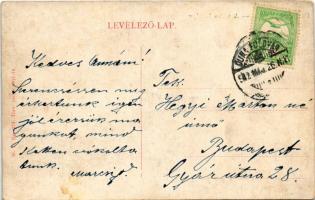 LEVELEZŐ-LAP.
Kedves Annám!
Szerencsésen meg
érkeztünk igen
jól érezzük ma
gunkat, mind
ketten csókolta
tunk.
Mariska
Tek.
Hegyi Márton né
úrnő
Budapest
Gyár utca 28.